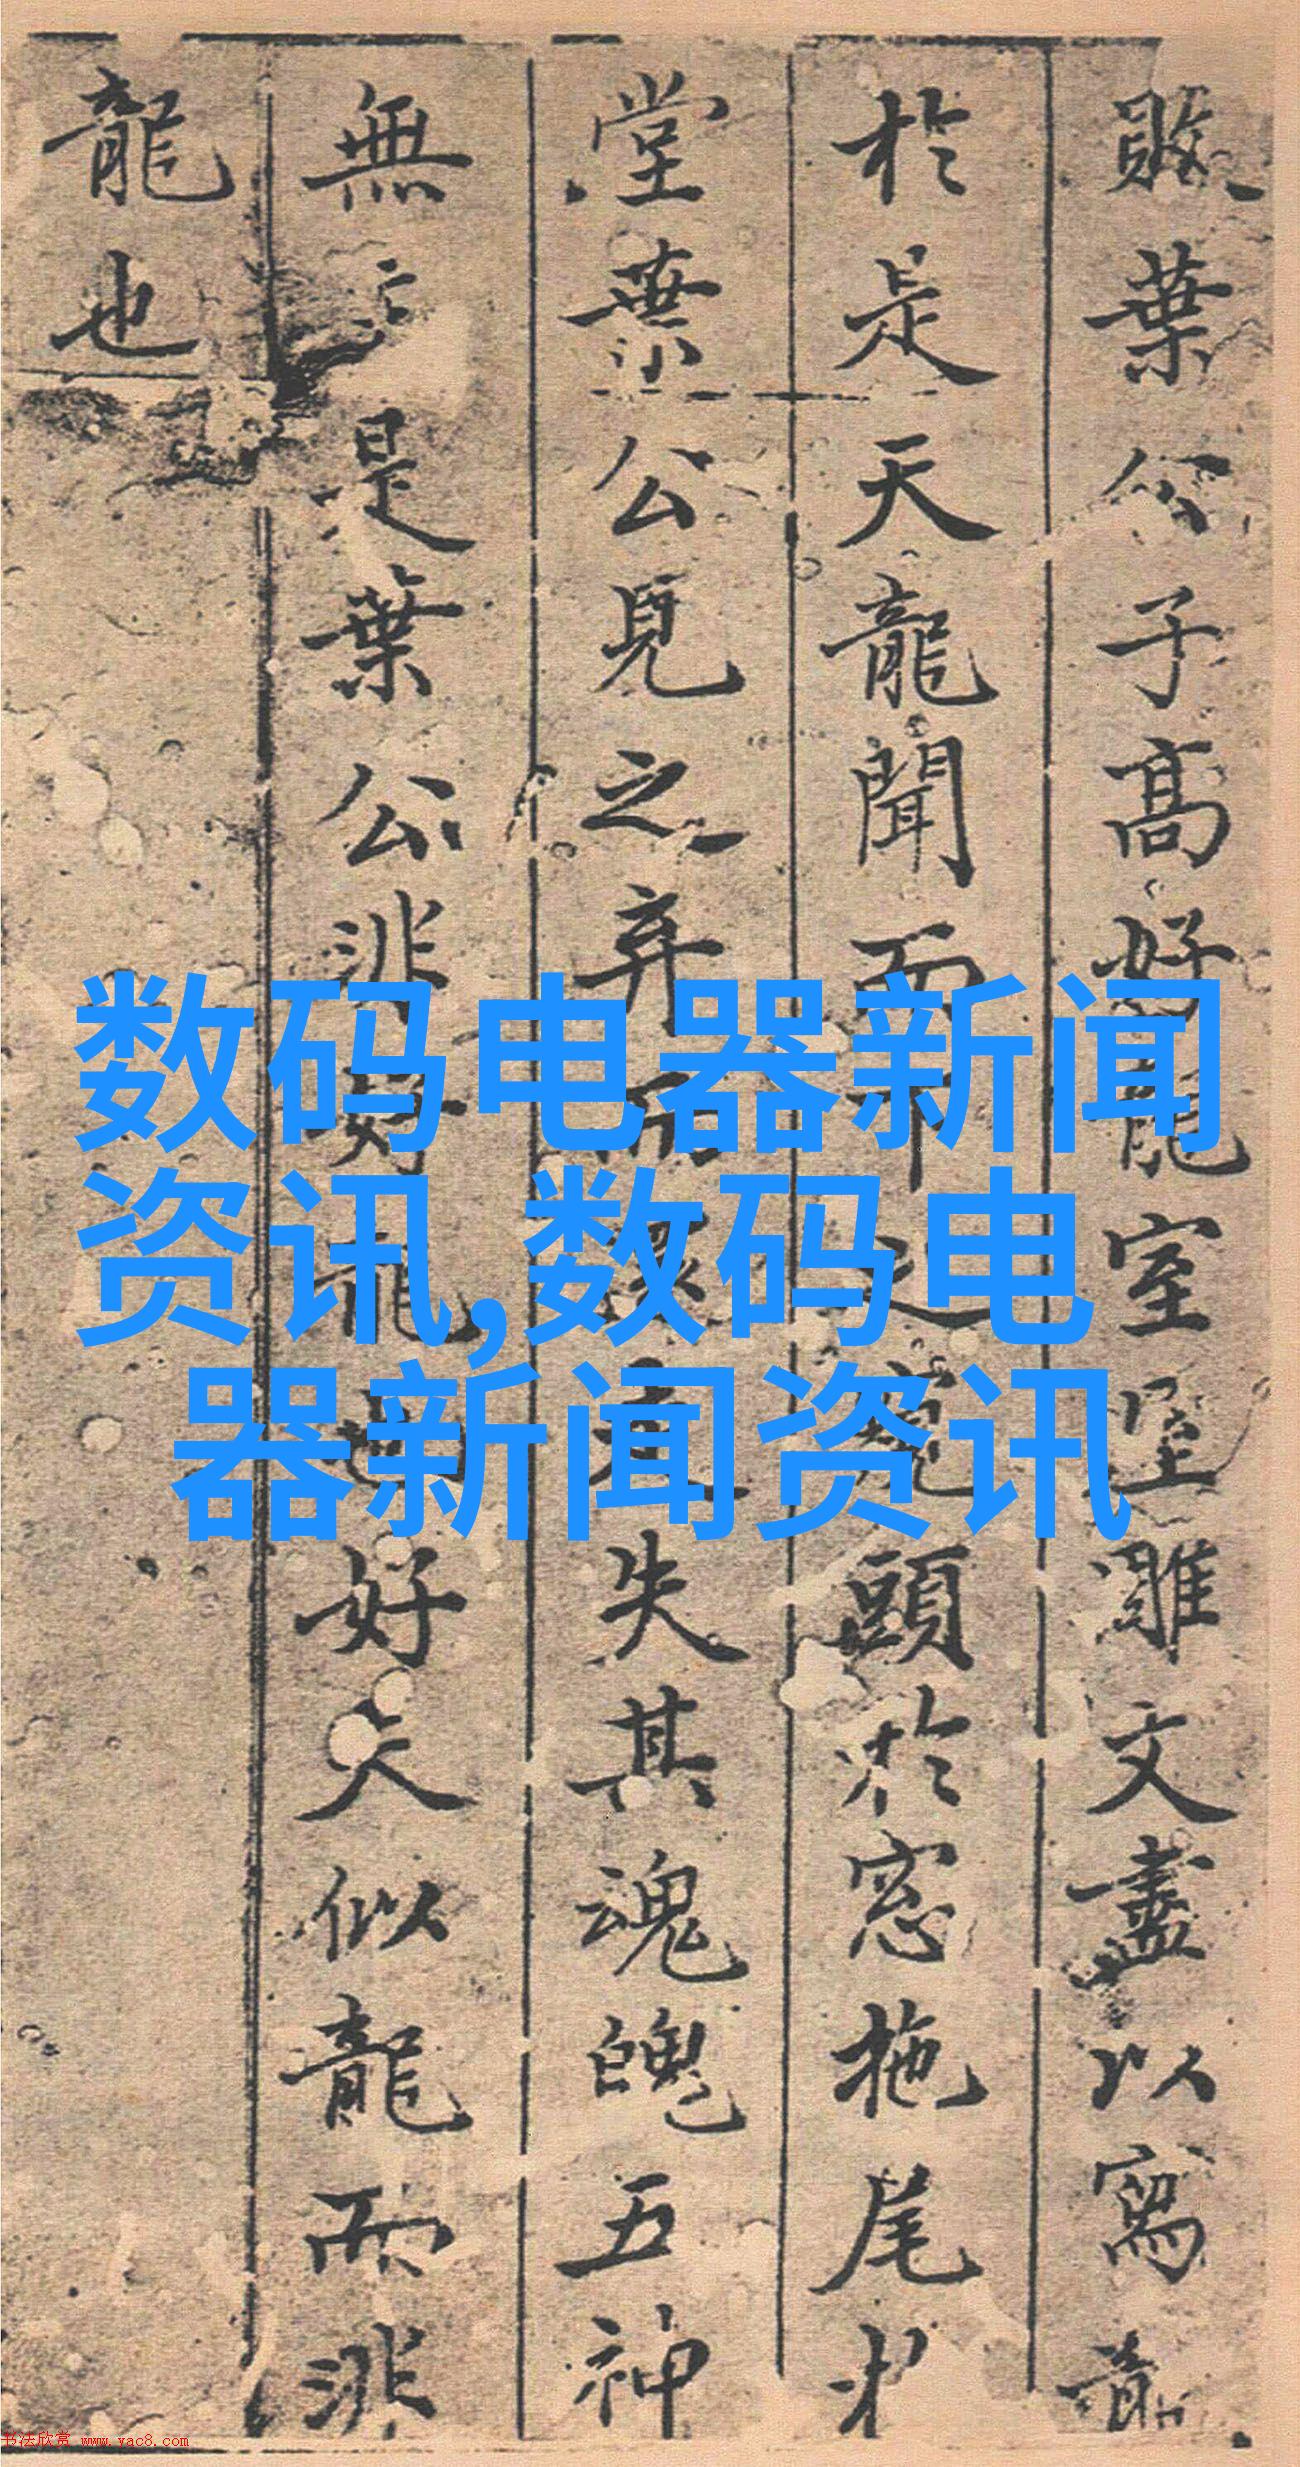 敗葉公子高好龍室雕文盡以寫龍
於是天龍聞而下之窺頭於窓拖尾於
堂葉公見之弃而還走失其魂魄五神
無主是葉公非好龍也好夫似龍而非
龍也
数码电器新闻
资讯,数码电
器新闻资讯
书法欣赏 www.yac8.com